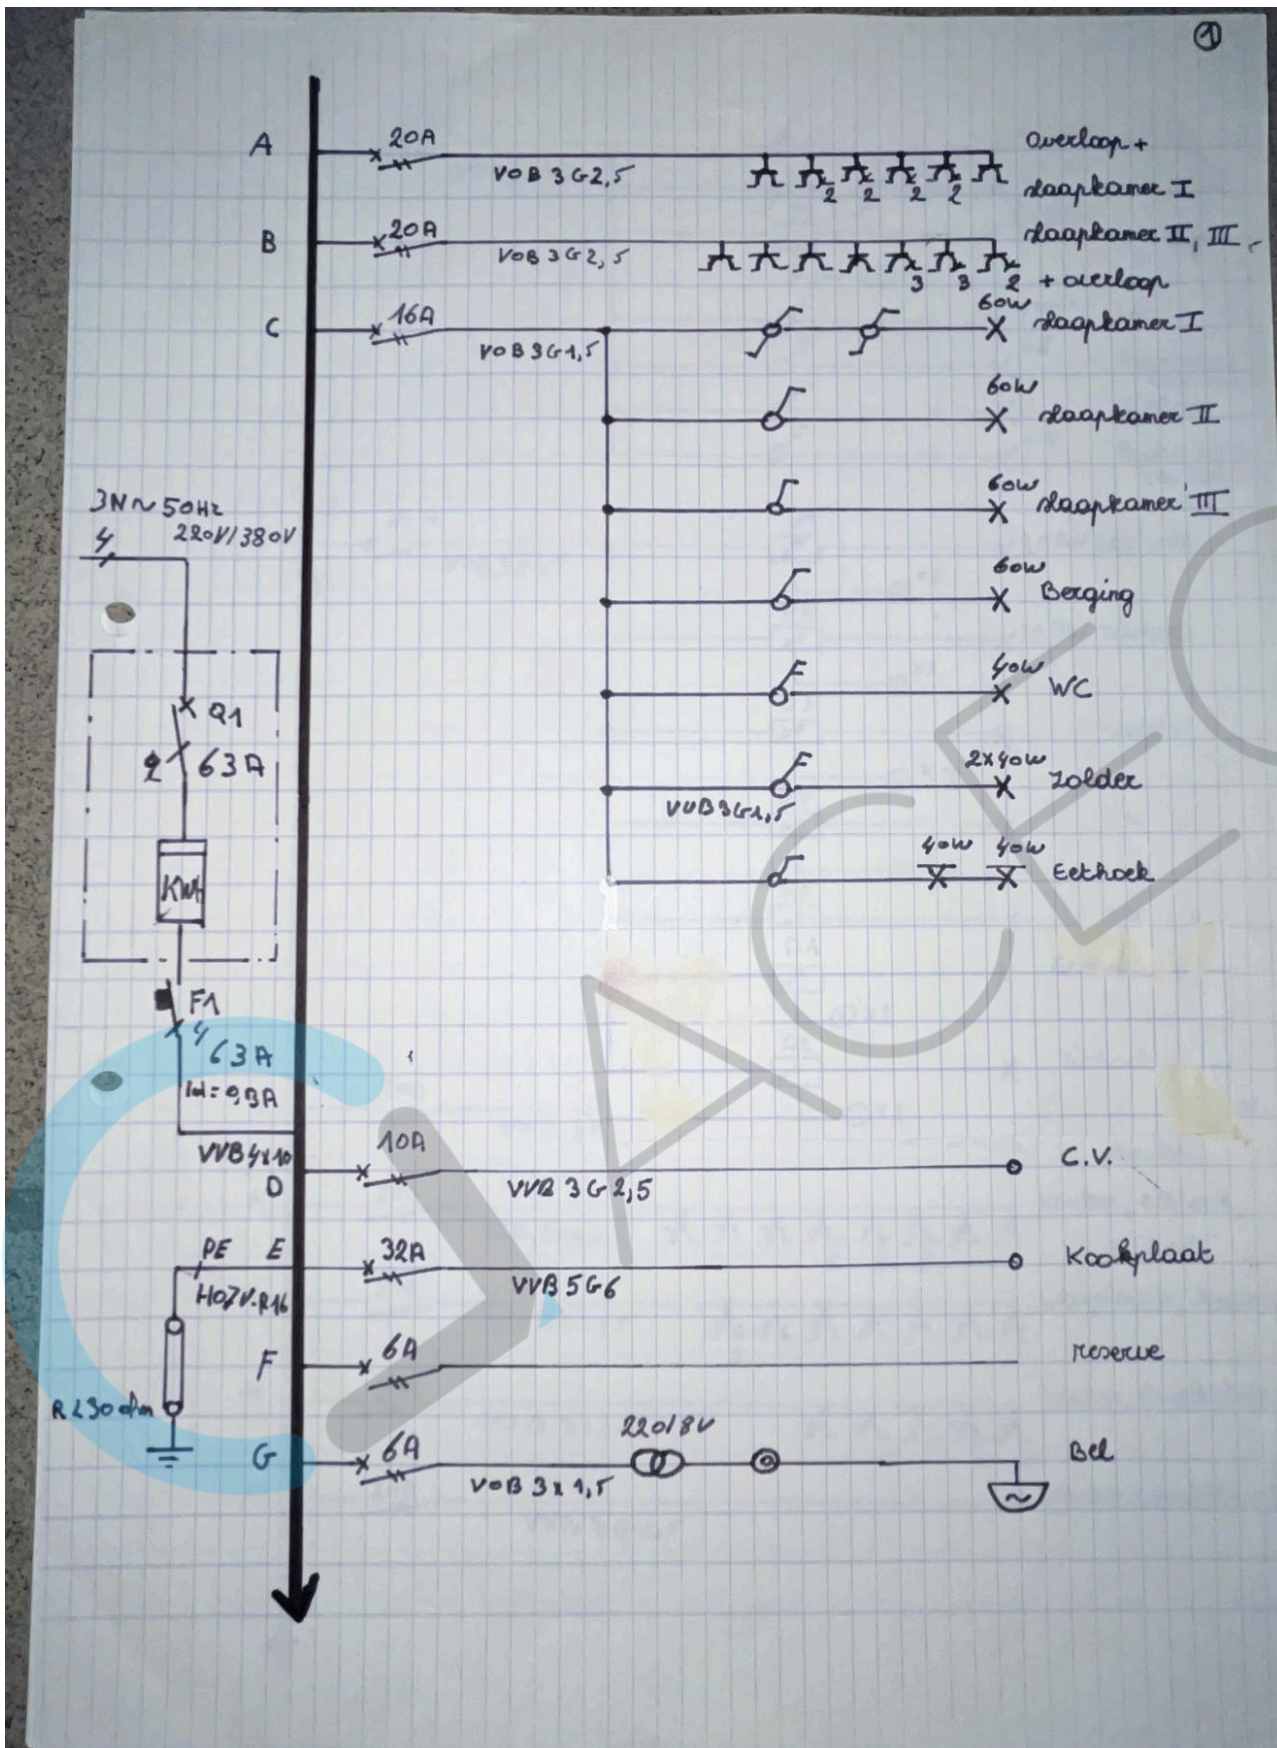 1
A
20A
VOB 3G2,5
2
2
2
2
overloop +
slaapkamer I
B
20A
VOB 3G2,5
3
3
2
slaapkamer II, III
+ overloop
C
16A
VOB 3G1,5
60W
slaapkamer I
60W
slaapkamer II
60W
slaapkamer III
60W
Berging
40W
WC
VVB3G1,5
2x40W
Zolder
40W
40W
Eethoek
3N~50Hz
220V/380V
4
Q1
2
63A
KWh
F1
4
63A
Id=0,3A
VVB4x10
D
10A
VVB 3G2,5
C.V.
PE
H07V-R16
R<30ohm
E
32A
VVB 5G6
Kookplaat
F
6A
reserve
G
6A
VOB 3x1,5
220/8V
~
Bel
ACEG